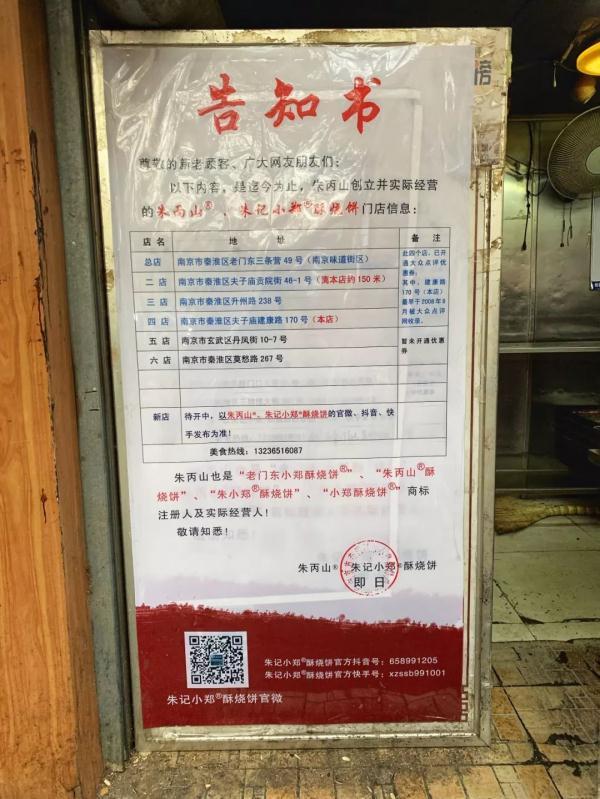 告知书
尊敬的新老顾客、广大网友朋友们：
以下内容，是迄今为止，朱丙山创立并实际经营
的朱丙山®、朱记小郑®酥烧饼门店信息：
店名 地址 备注
总店 南京市秦淮区老门东三条营49号（南京味道街区）
二店 南京市秦淮区夫子庙贡院街46-1号（离本店约150米）
三店 南京市秦淮区升州路238号
四店 南京市秦淮区夫子庙建康路170号（本店）
此四个店，已开
通大众点评优
惠券。
其中，建康路
170号（本店）
最早于2008年9
月被大众点评
网收录。
五店 南京市玄武区丹凤街10-7号
六店 南京市秦淮区莫愁路267号
暂未开通优惠
券
新店 待开中，以朱丙山®、朱记小郑®酥烧饼的官微、抖音、快
手发布为准！
美食热线：13236516087
朱丙山也是“老门东小郑酥烧饼®”、“朱丙山®酥
烧饼”、“朱小郑®酥烧饼”、“小郑酥烧饼®”商标
注册人及实际经营人！
敬请知悉！
朱丙山® 朱记小郑®酥烧饼
即日
朱记小郑®酥烧饼官方抖音号：658991205
朱记小郑®酥烧饼官方快手号：xzssb991001
朱记小郑®酥烧饼官微